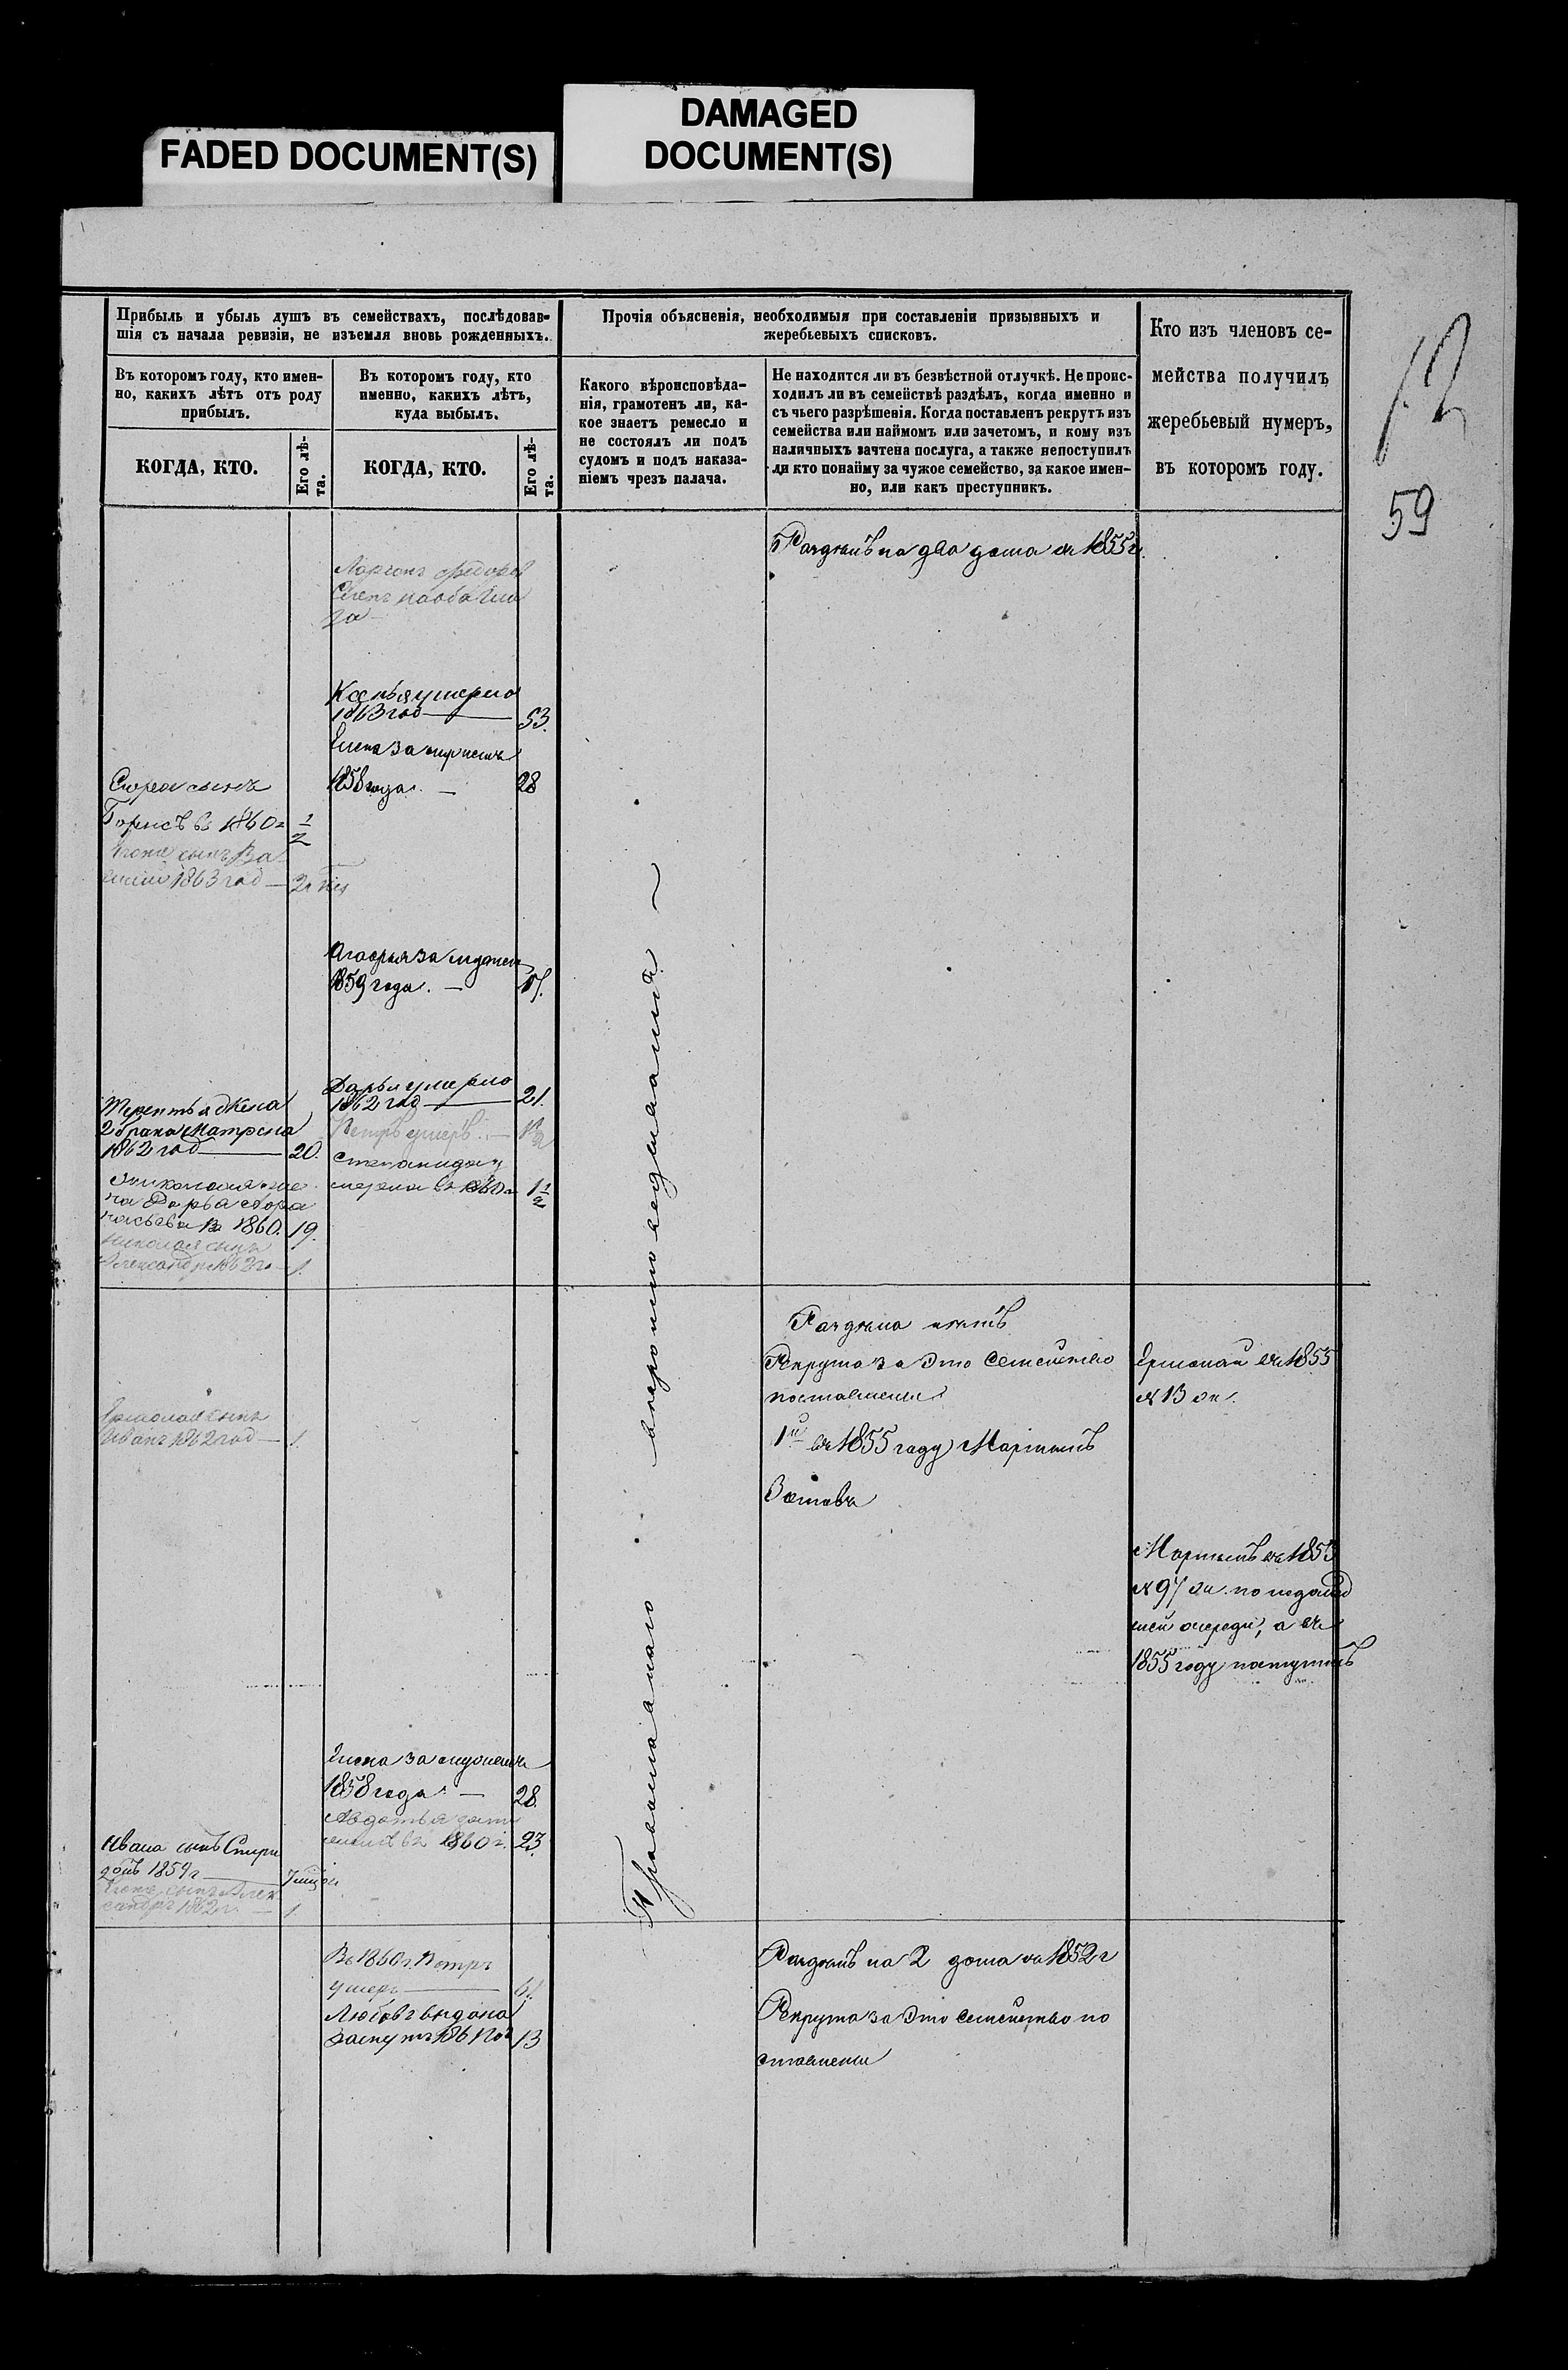 FADED DOCUMENT(S)
DAMAGED
DOCUMENT(S)
12
59
Прибыль и убыль душъ въ семействахъ, послѣдовав-
шія съ начала ревизіи, не изъемля вновь рожденныхъ.
Въ которомъ году, кто имен-
но, какихъ лѣтъ отъ роду
прибылъ.
КОГДА, КТО.
Его лѣ-
та.
Въ которомъ году, кто
именно, какихъ лѣтъ,
куда выбылъ.
КОГДА, КТО.
Его лѣ-
та.
Прочія объясненія, необходимыя при составленіи призывныхъ и
жеребьевыхъ списковъ.
Какого вѣроисповѣда-
нія, грамотенъ ли, ка-
кое знаетъ ремесло и
не состоялъ ли подъ
судомъ и подъ наказа-
ніемъ чрезъ палача.
Не находится ли въ безвѣстной отлучкѣ. Не проис-
ходилъ ли въ семействѣ раздѣлъ, когда именно и
съ чьего разрѣшенія. Когда поставленъ рекрутъ изъ
семейства или наймомъ или зачетомъ, и кому изъ
наличныхъ зачтена послуга, а также непоступилъ
ли кто понайму за чужое семейство, за какое имен-
но, или какъ преступникъ.
Кто изъ членовъ се-
мейства получилъ
жеребьевый нумеръ,
въ которомъ году.
Сынъ
Борисъ въ 1860 г 1/2
сынъ Ва
силій 1863 год — 2
жена
2 брака Матрена
1862 год — 20.
Николая же
на Дарья Афа
насьева въ 1860. 19.
Николая сынъ
Александръ 1862 го — 1.
Ермолая сынъ
Иванъ 1862 год — 1.
Ивана сынъ Спири
донъ 1859 г
сынъ Алек
сандръ 1862 г. — 1.
Федоров
Ксенья умерла
1863 год — 53.
Елена за мужемъ
1858 года. — 28
Агафья за мужем
1859 года. — 17.
Дарья умерла
1862 год — 21.
Петръ умеръ. —
Степанида у
мерла въ 1860 г 1 1/2
Елена за мужемъ
1858 года. — 28.
Авдотья
въ 1860 г. 23.
Въ 1860 г. Петръ
умеръ — 61.
Любовь выдана
замужъ 1861 год 13
Православнаго вѣроисповѣданія
Раздѣлъ на два дома въ 1855 г.
Раздѣла нѣтъ
Рекрута за это семейство
поставлены
1й въ 1855 году Мартынъ
Зотовъ
Раздѣлъ на 2 дома въ 1852 г
Рекрута за это семейство по
ставлены
Ермолай въ 1855
№ 13
Мартынъ въ 1855
№ 97
очереди, а въ
1855 году поступилъ